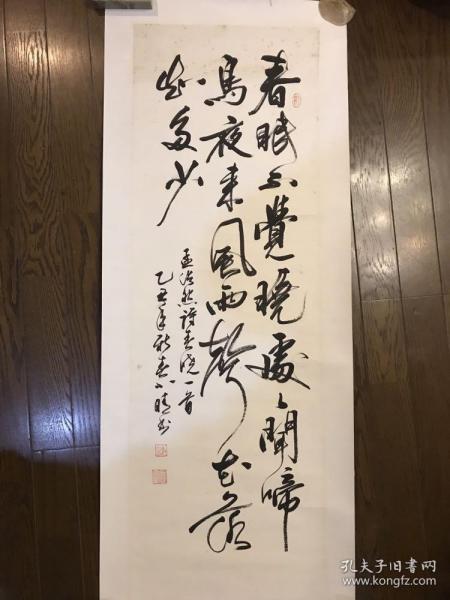 春眠不覺曉處々聞啼
鳥夜来風雨聲花落
知多少
孟浩然詩春曉一首
乙丑年新春晴书
孔夫子旧书网
www.kongfz.com